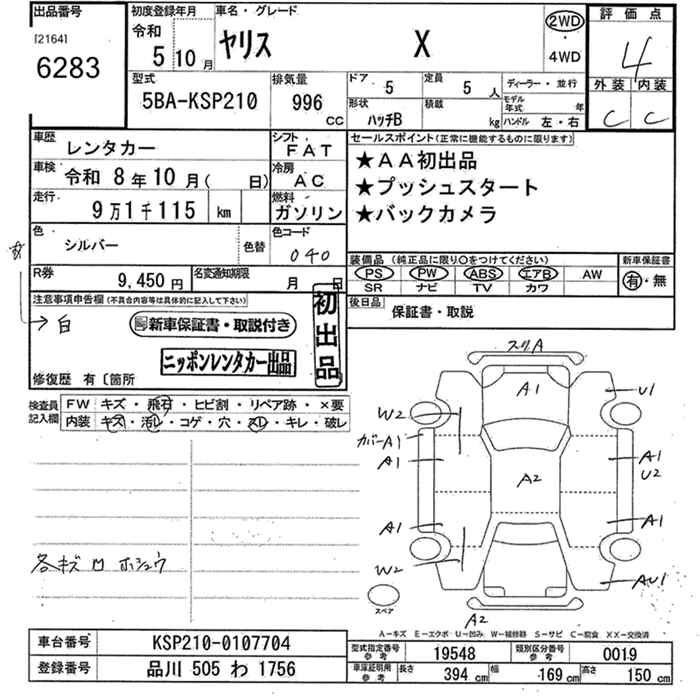 出品番号
[2164]
6283
初度登録年月
令和
5 10 月
車名・グレード
ヤリス X
2WD
・
4WD
評価点
4
外装 内装
C C
型式
5BA-KSP210
排気量
996
CC
ドア
5
定員
5 人
形状
ハッチB
積載
kg
ディーラー・並行
モデル年式 年
ハンドル 左・右
車歴
レンタカー
シフト
FAT
車検
令和 8年10月( 日)
冷房
AC
走行
9万1千115 km
燃料
ガソリン
色
シルバー
色替
カラーコード
040
R券
9,450円
名変通知期限
月 日
セールスポイント(正常に機能するものに限ります)
★AA初出品
★プッシュスタート
★バックカメラ
装備品(純正品に限り○をつけてください)
PS PW ABS エアB AW
SR ナビ TV カワ
新車保証書
有・無
後日品
保証書・取説
注意事項申告欄(不具合内容等は具体的に記入して下さい)
→白
新車保証書・取説付き
ニッポンレンタカー出品
初出品
修復歴 有〔箇所
検査員記入欄
FW キズ・飛石・ヒビ割・リペア跡・×要
内装 キズ・汚レ・コゲ・穴・スレ・キレ・破レ
各キズ ロ ホシュウ
スリA
A1
U1
W2
カバーA1
A1
A1
U2
A2
A1
A1
W2
AU1
スペア
A2
A-キズ E-エクボ U-凹み W-補修跡 S-サビ C-腐食 XX-交換済
車台番号
KSP210-0107704
登録番号
品川 505 わ 1756
型式指定番号
参考
19548
類別区分番号
参考
0019
車庫証明用
参考
長さ 394 cm 幅 169 cm 高さ 150 cm